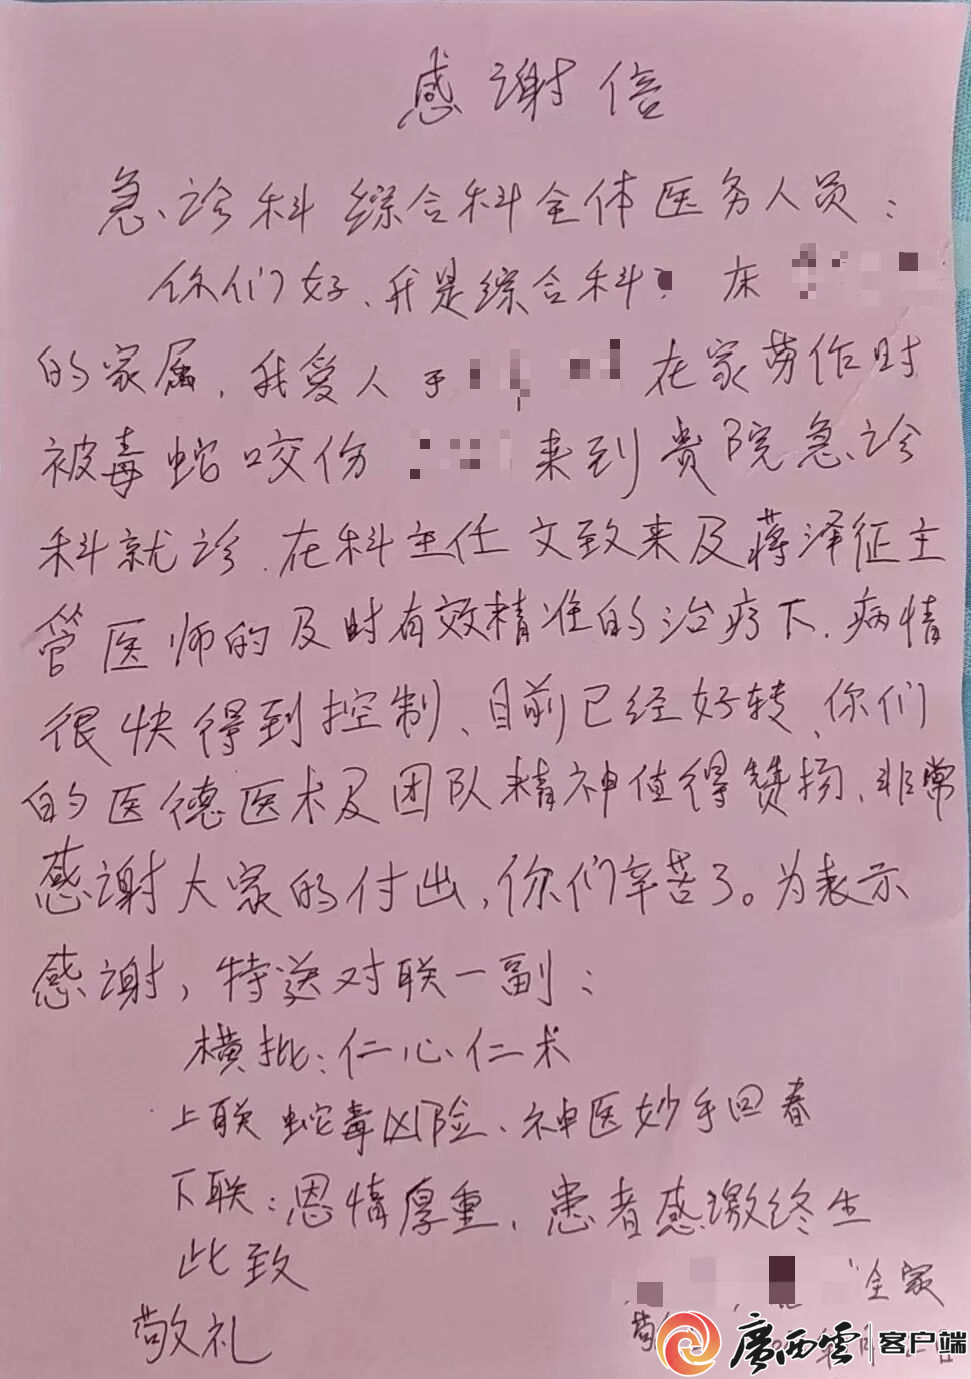 感谢信
急诊科综合科全体医务人员：
你们好、我是综合科 床
的家属，我爱人于 在家劳作时
被毒蛇咬伤 来到贵院急诊
科就诊．在科主任文致来及蒋泽征主
管医师的及时有效精准的治疗下．病情
很快得到控制、目前已经好转、你们
的医德医术及团队精神值得赞扬、非常
感谢大家的付出，你们辛苦了。为表示
感谢，特送对联一副：
横批：仁心仁术
上联 蛇毒凶险、神医妙手回春
下联：恩情厚重、患者感激终生
此致
全家
敬礼
廣西雲 客户端